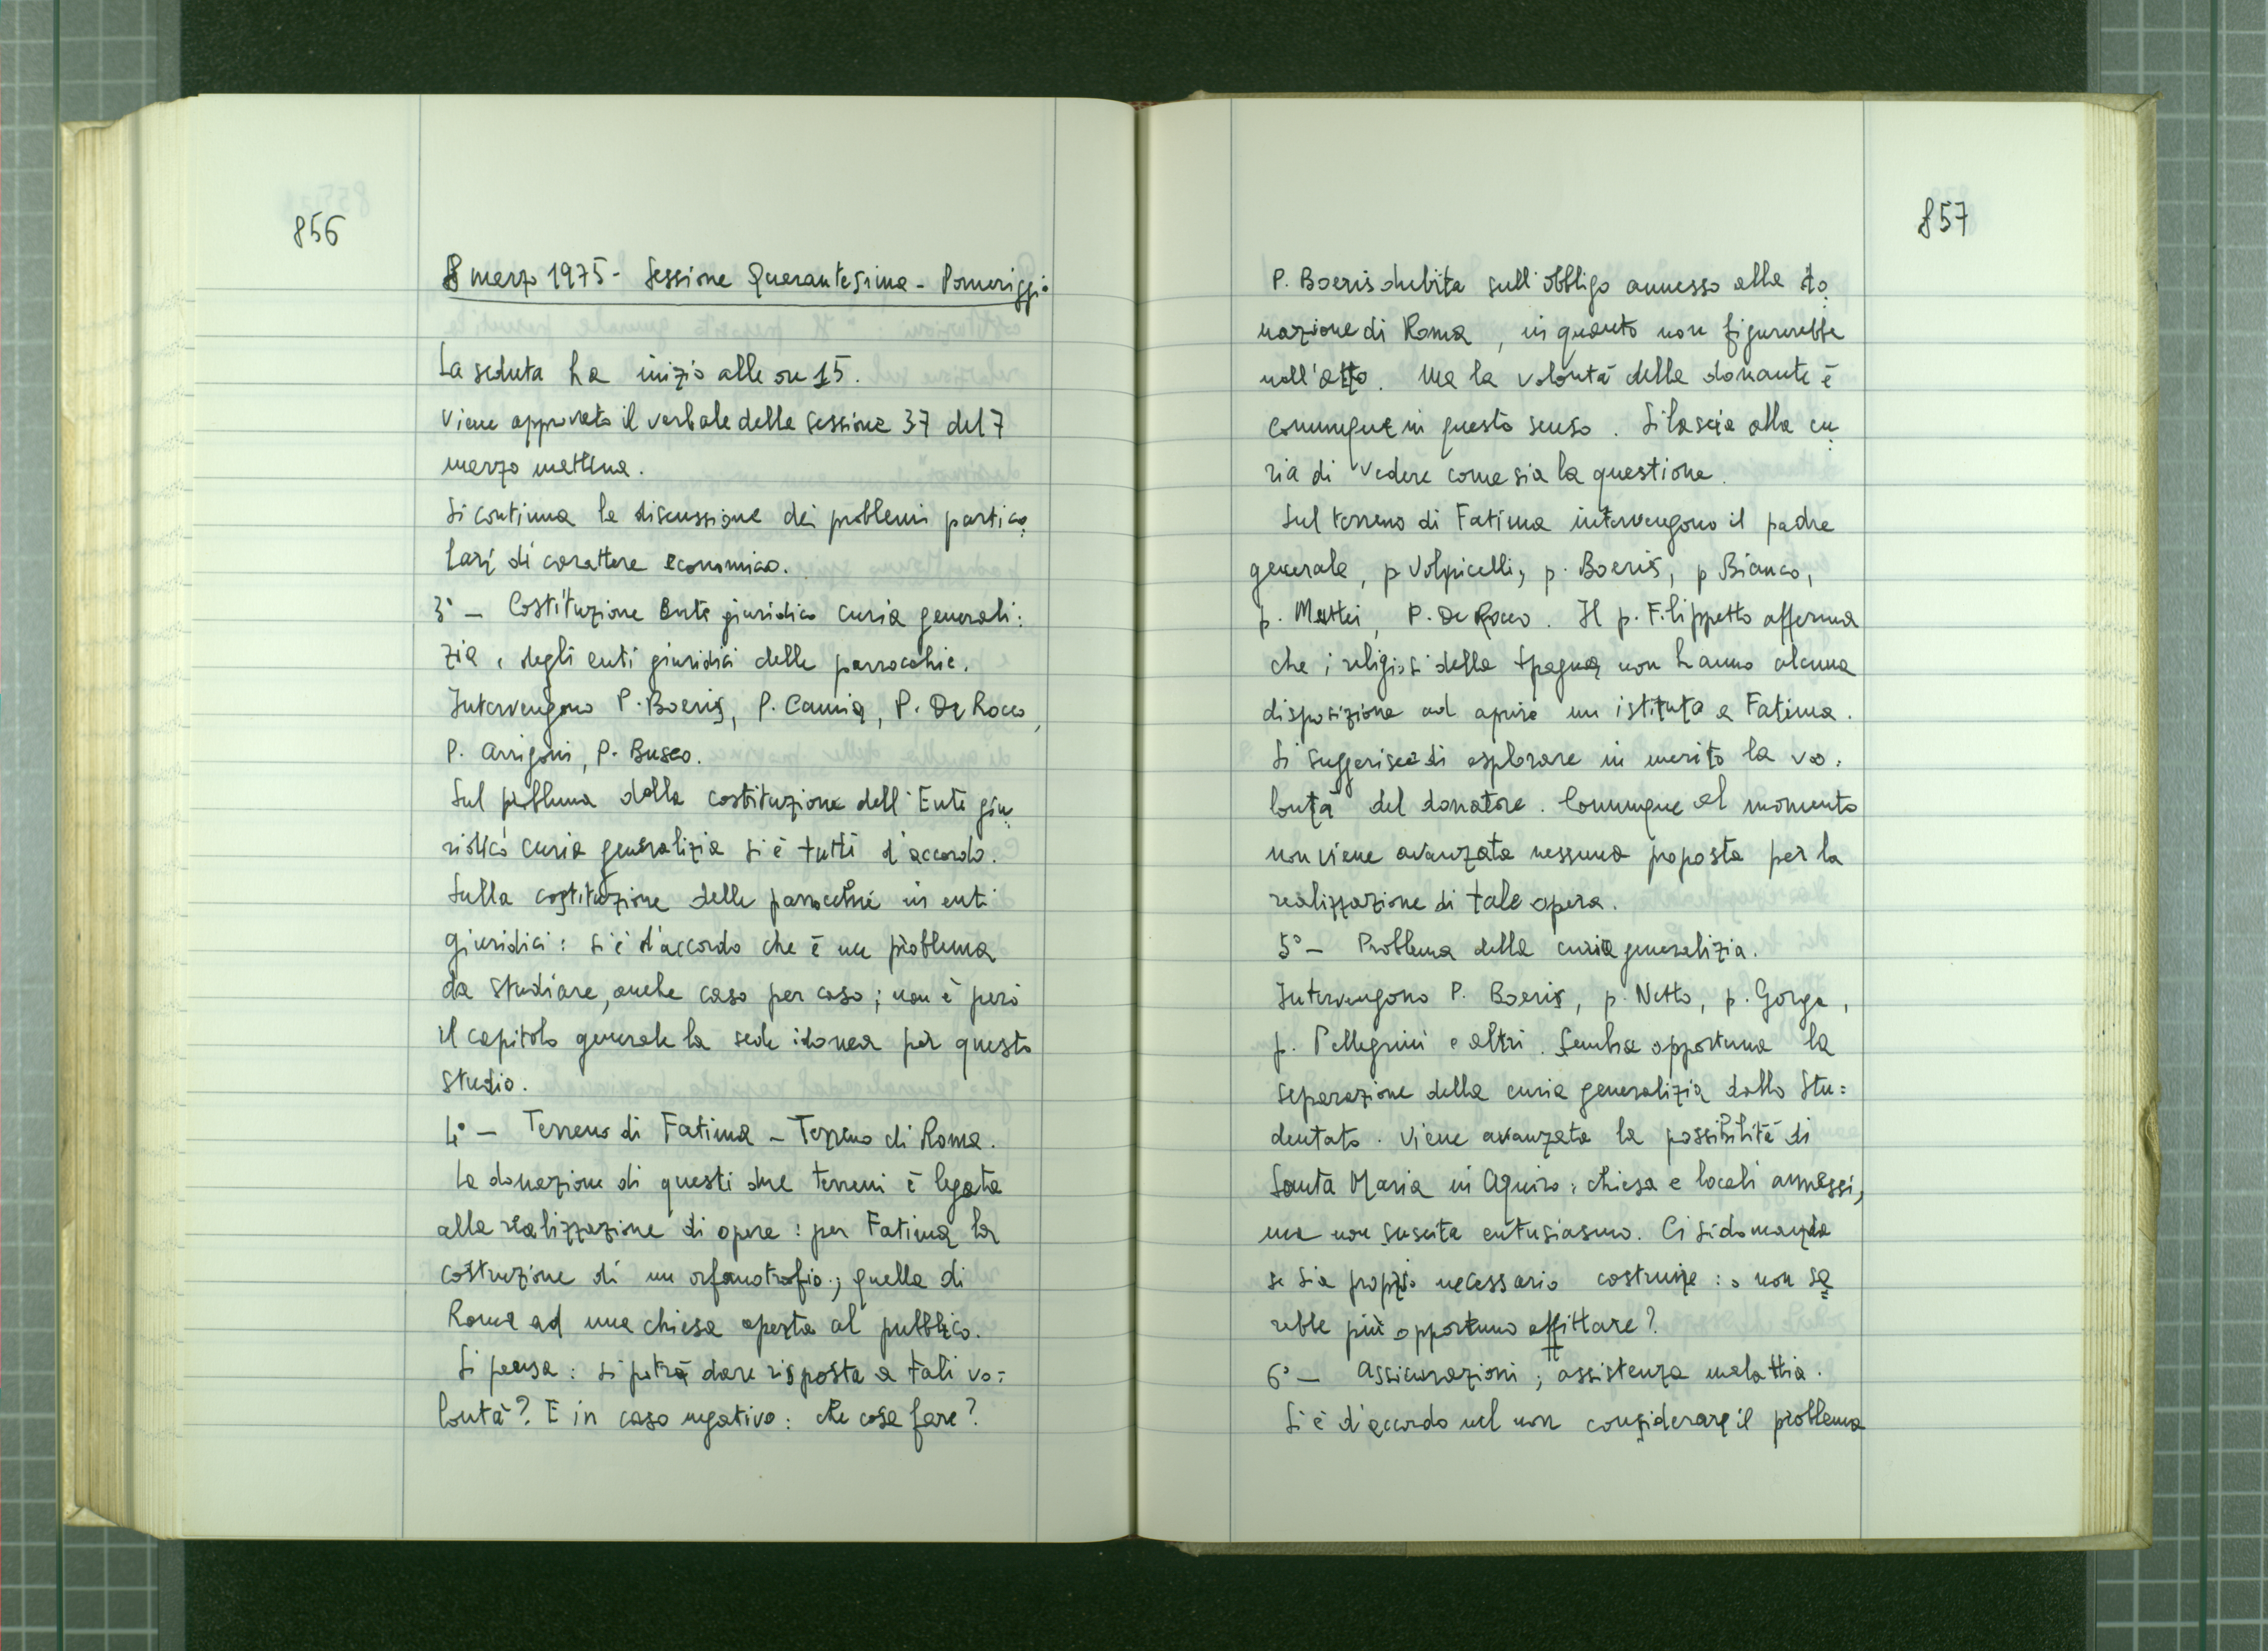 856
8 marzo 1975 - Sessione Quarantesima - Pomeriggio
La seduta ha inizio alle ore 15.
Viene approvato il verbale della sessione 37 del 7
marzo mattina.
Si continua la discussione dei problemi partico
lari di carattere economico.
3° - Costituzione Ente giuridico curia generali:
zia, degli enti giuridici delle parrocchie.
Intervengono P. Boeris, P. Camia, P. De Rocco,
P. Arrigoni, P. Busco.
Sul problema della costituzione dell'Ente giu
ridico curia generalizia si è tutti d'accordo.
Sulla costituzione delle parrocchie in enti
giuridici: si è d'accordo che è un problema
da studiare, anche caso per caso; non è però
il capitolo generale la sede idonea per questo
studio.
4° - Terreno di Fatima - Terreno di Roma.
La donazione di questi due terreni è legata
alla realizzazione di opere: per Fatima la
costruzione di un orfanotrofio; quella di
Roma ad una chiesa aperta al pubblico.
Si pensa: si potrà dare risposta a tali vo=
lontà? E in caso negativo: che cosa fare?
857
P. Boeris dubita sull'obbligo annesso alla do
nazione di Roma, in quanto non figurerebbe
nell'atto. Ma la volontà della donante è
comunque in questo senso. Si lascia alla cu
ria di vedere come sia la questione.
Sul terreno di Fatima intervengono il padre
generale, p Volpicelli, p. Boeris, p Bianco,
p. Mattei, P. De Rocco. Il p. Filippetto afferma
che i religiosi della Spagna non hanno alcuna
disposizione ad aprire un istituto a Fatima.
Si suggerisce di esplorare in merito la vo:
lontà del donatore. Comunque al momento
non viene avanzata nessuna proposta per la
realizzazione di tale opera.
5° - Problema della curia generalizia.
Intervengono P. Boeris, p. Netto, p. Gorga,
p. Pellegrini e altri. Sembra opportuna la
separazione della curia generalizia dallo Stu=
dentato. Viene avanzata la possibilità di
Santa Maria in Aquiro: chiesa e locali annessi,
ma non suscita entusiasmo. Ci si domanda
se sia proprio necessario costruire: o non sa
rebbe più opportuno affittare?
6° - Assicurazioni; assistenza malattia.
Si è d'accordo nel non considerare il problema